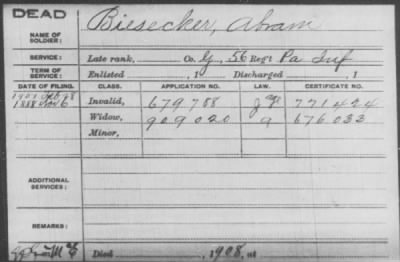 DEAD
NAME OF SOLDIER: Biesecker, Abram
SERVICE: Late rank, Co. G, 56 Regt Pa Inf
TERM OF SERVICE: Enlisted , 1 Discharged , 1
DATE OF FILING. CLASS. APPLICATION NO. LAW. CERTIFICATE NO.
1888 Invalid, 679788 771424
Widow, 909020 676033
Minor,
ADDITIONAL SERVICES:
REMARKS:
Died , 1908, at